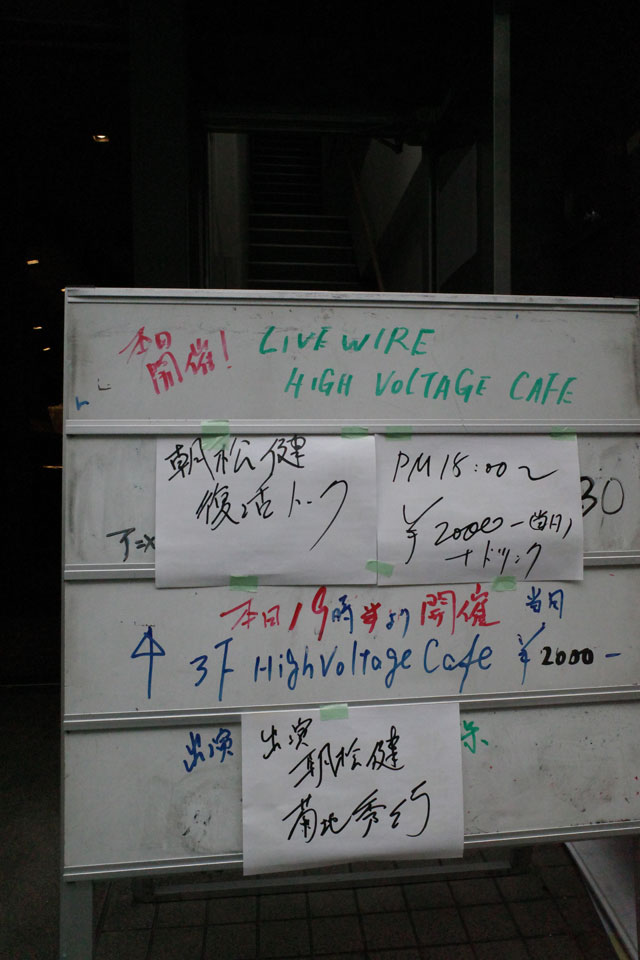 本日
開催!
LIVE WIRE
HIGH VOLTAGE CAFE
朝松健
復活トーク
PM 18:00〜
¥2000-(当日)
+ドリンク
30
本日19時より開催
当日
3F High Voltage Cafe ¥2000-
出演
出演
朝松健
菊地秀行